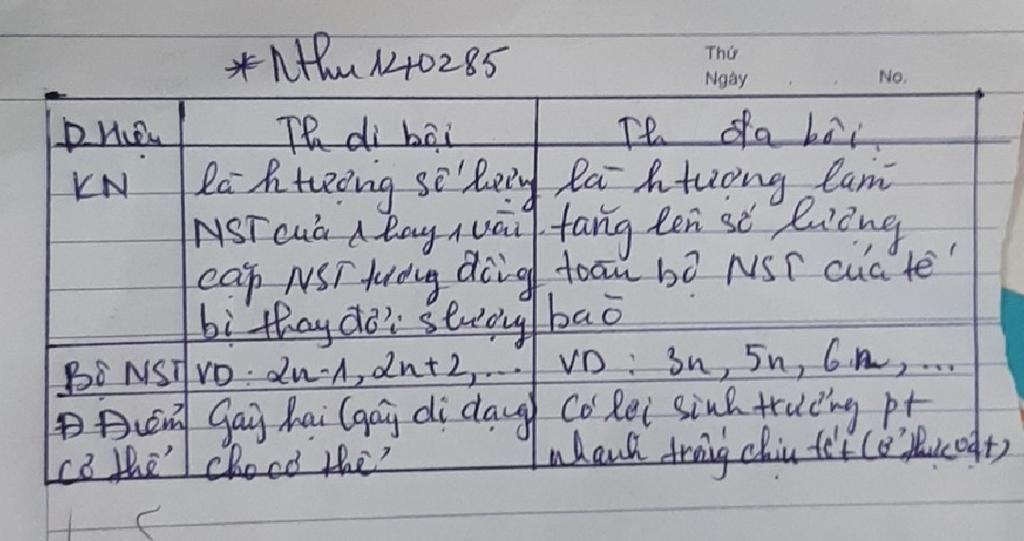 *Nthu 140285
Thứ
Ngày . . No.
D.Hiệu Th dị bội Th đa bội
KN là h tượng số lượng là h tượng làm
NST của 1 hay 1 vài tăng lên số lượng
cặp NST tương đồng toàn bộ NST của tế
bị thay đổi slượng bào
Bộ NST VD: 2n-1, 2n+2,... VD: 3n, 5n, 6n,...
Đ Điểm Gây hại (gây dị dạng) Có lợi sinh trưởng pt
cơ thể cho cơ thể nhanh chịu tốt (ở thực vật)